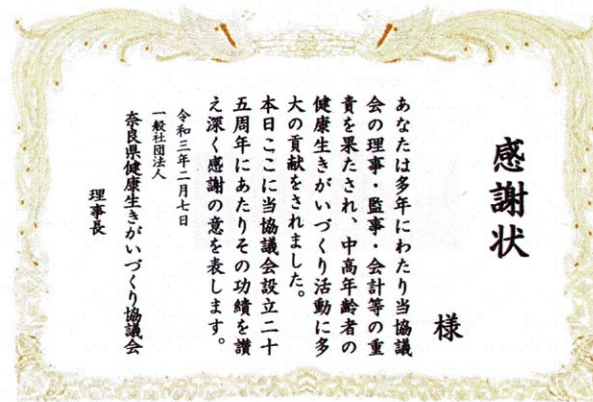 感謝状
様
あなたは多年にわたり当協議
会の理事・監事・会計等の重
責を果たされ、中高年齢者の
健康生きがいづくり活動に多
大の貢献をされました。
本日ここに当協議会設立二十
五周年にあたりその功績を讃
え深く感謝の意を表します。
令和三年二月七日
一般社団法人
奈良県健康生きがいづくり協議会
理事長